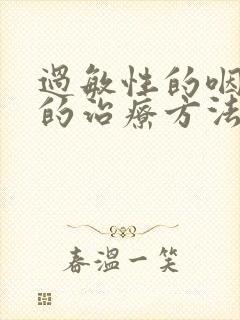 過敏性的咽
的治療方法
春溫一笑